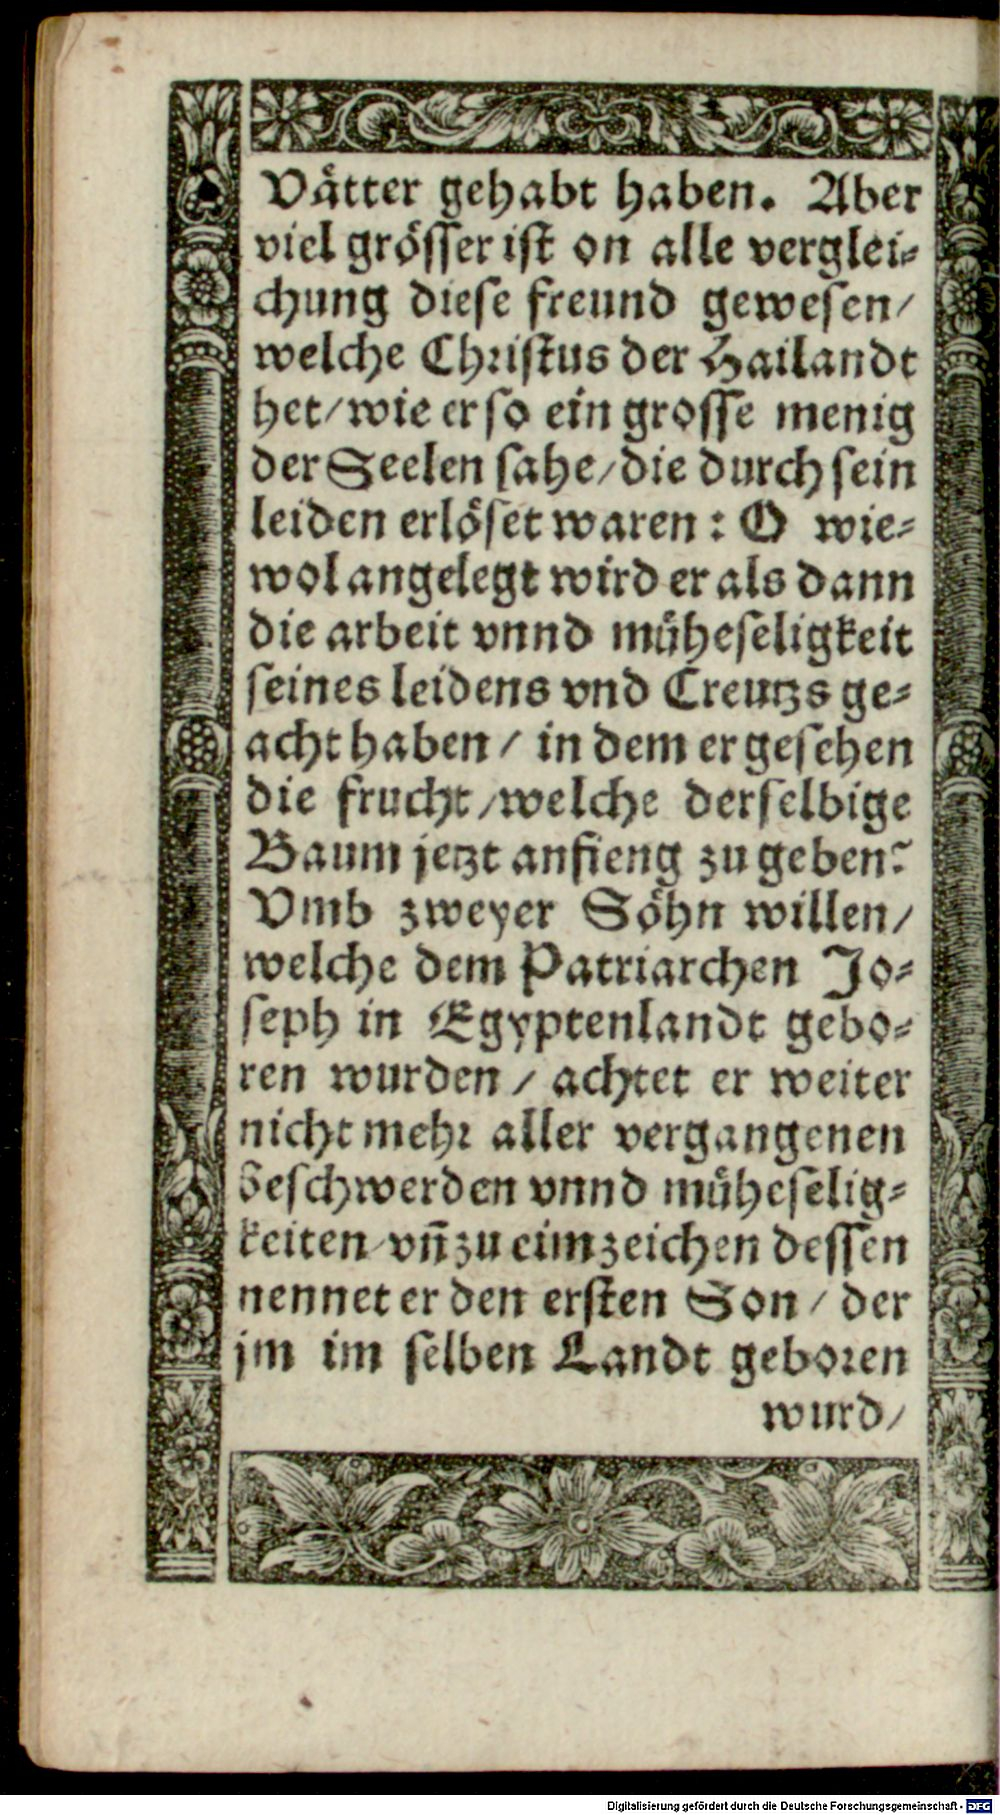 Vätter gehabt haben. Aber
viel grösser ist on alle verglei-
chung diese freund gewesen/
welche Christus der Hailandt
het/wie er so ein grosse menig
der Seelen sahe/die durch sein
leiden erlöset waren: O wie-
wol angelegt wird er als dann
die arbeit vnnd müheseligkeit
seines leidens vnd Creutzs ge-
acht haben/ in dem er gesehen
die frucht/welche derselbige
Baum jetzt anfieng zu geben?
Vmb zweyer Söhn willen/
welche dem Patriarchen Jo-
seph in Egyptenlandt gebo-
ren wurden/ achtet er weiter
nicht mehr aller vergangenen
beschwerden vnnd müheselig-
keiten/vñ zu eim zeichen dessen
nennet er den ersten Son/ der
jm im selben Landt geboren
wurd/
Digitalisierung gefördert durch die Deutsche Forschungsgemeinschaft - DFG